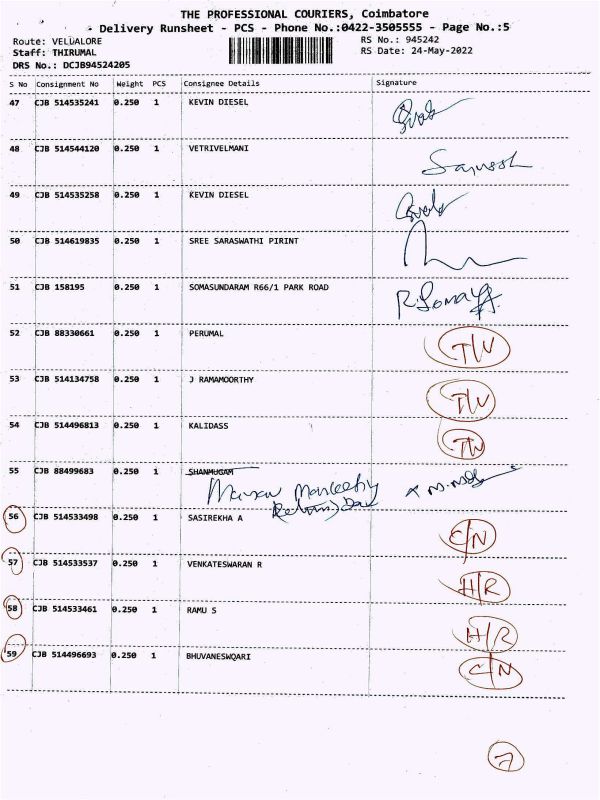 THE PROFESSIONAL COURIERS, Coimbatore
Delivery Runsheet - PCS - Phone No.:0422-3505555 - Page No.:5
Route: VELLALORE RS No.: 945242
Staff: THIRUMAL RS Date: 24-May-2022
DRS No.: DCJB94524205
S No Consignment No Weight PCS Consignee Details Signature
47 CJB 514535241 0.250 1 KEVIN DIESEL
48 CJB 514544120 0.250 1 VETRIVELMANI
49 CJB 514535258 0.250 1 KEVIN DIESEL
50 CJB 514619835 0.250 1 SREE SARASWATHI PIRINT
51 CJB 158195 0.250 1 SOMASUNDARAM R66/1 PARK ROAD
52 CJB 88330661 0.250 1 PERUMAL
53 CJB 514134758 0.250 1 J RAMAMOORTHY
54 CJB 514496813 0.250 1 KALIDASS
55 CJB 88499683 0.250 1 SHANMUGAM
56 CJB 514533498 0.250 1 SASIREKHA A C/N
57 CJB 514533537 0.250 1 VENKATESWARAN R H/R
58 CJB 514533461 0.250 1 RAMU S H/R
59 CJB 514496693 0.250 1 BHUVANESWQARI C/N
7